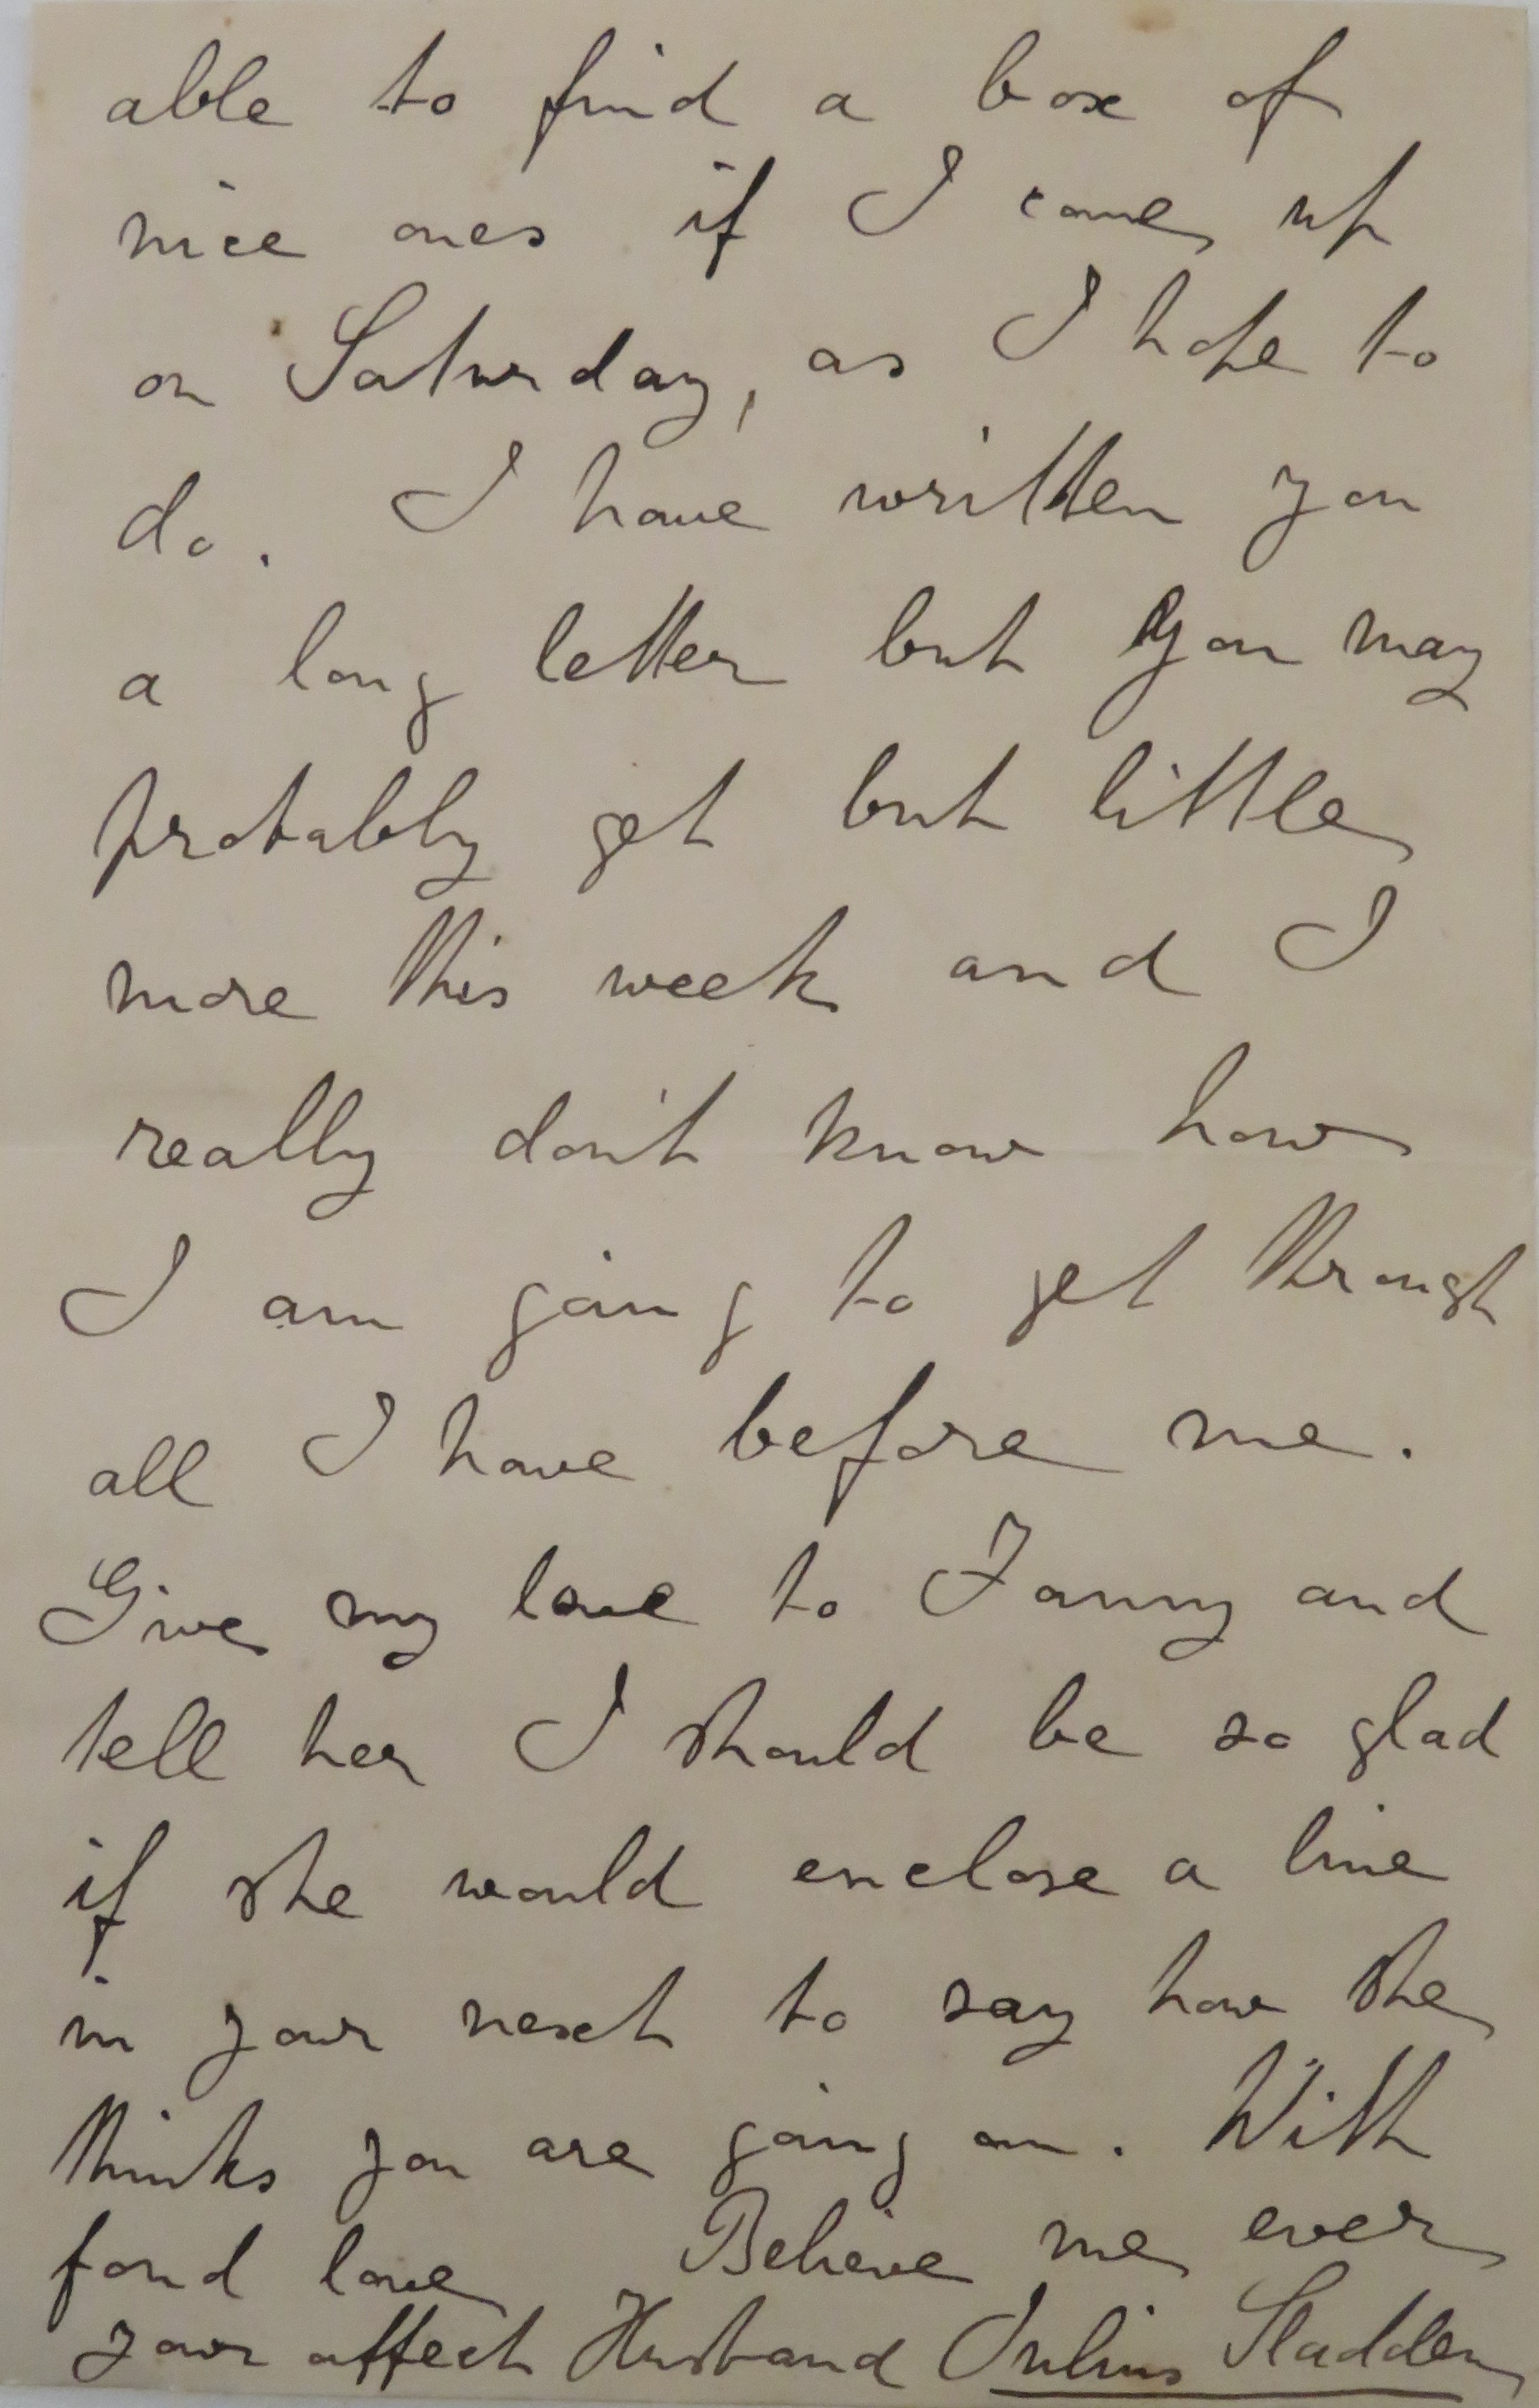 able to find a box of
nice ones if I come up
on Saturday, as I hope to
do. I have written you
a long letter but you may
probably get but little
more this week and I
really don't know how
I am going to get through
all I have before me.
Give my love to Fanny and
tell her I should be so glad
if she would enclose a line
in your next to say how she
thinks you are going on. With
fond love Believe me ever
your affect Husband Julius Sladden